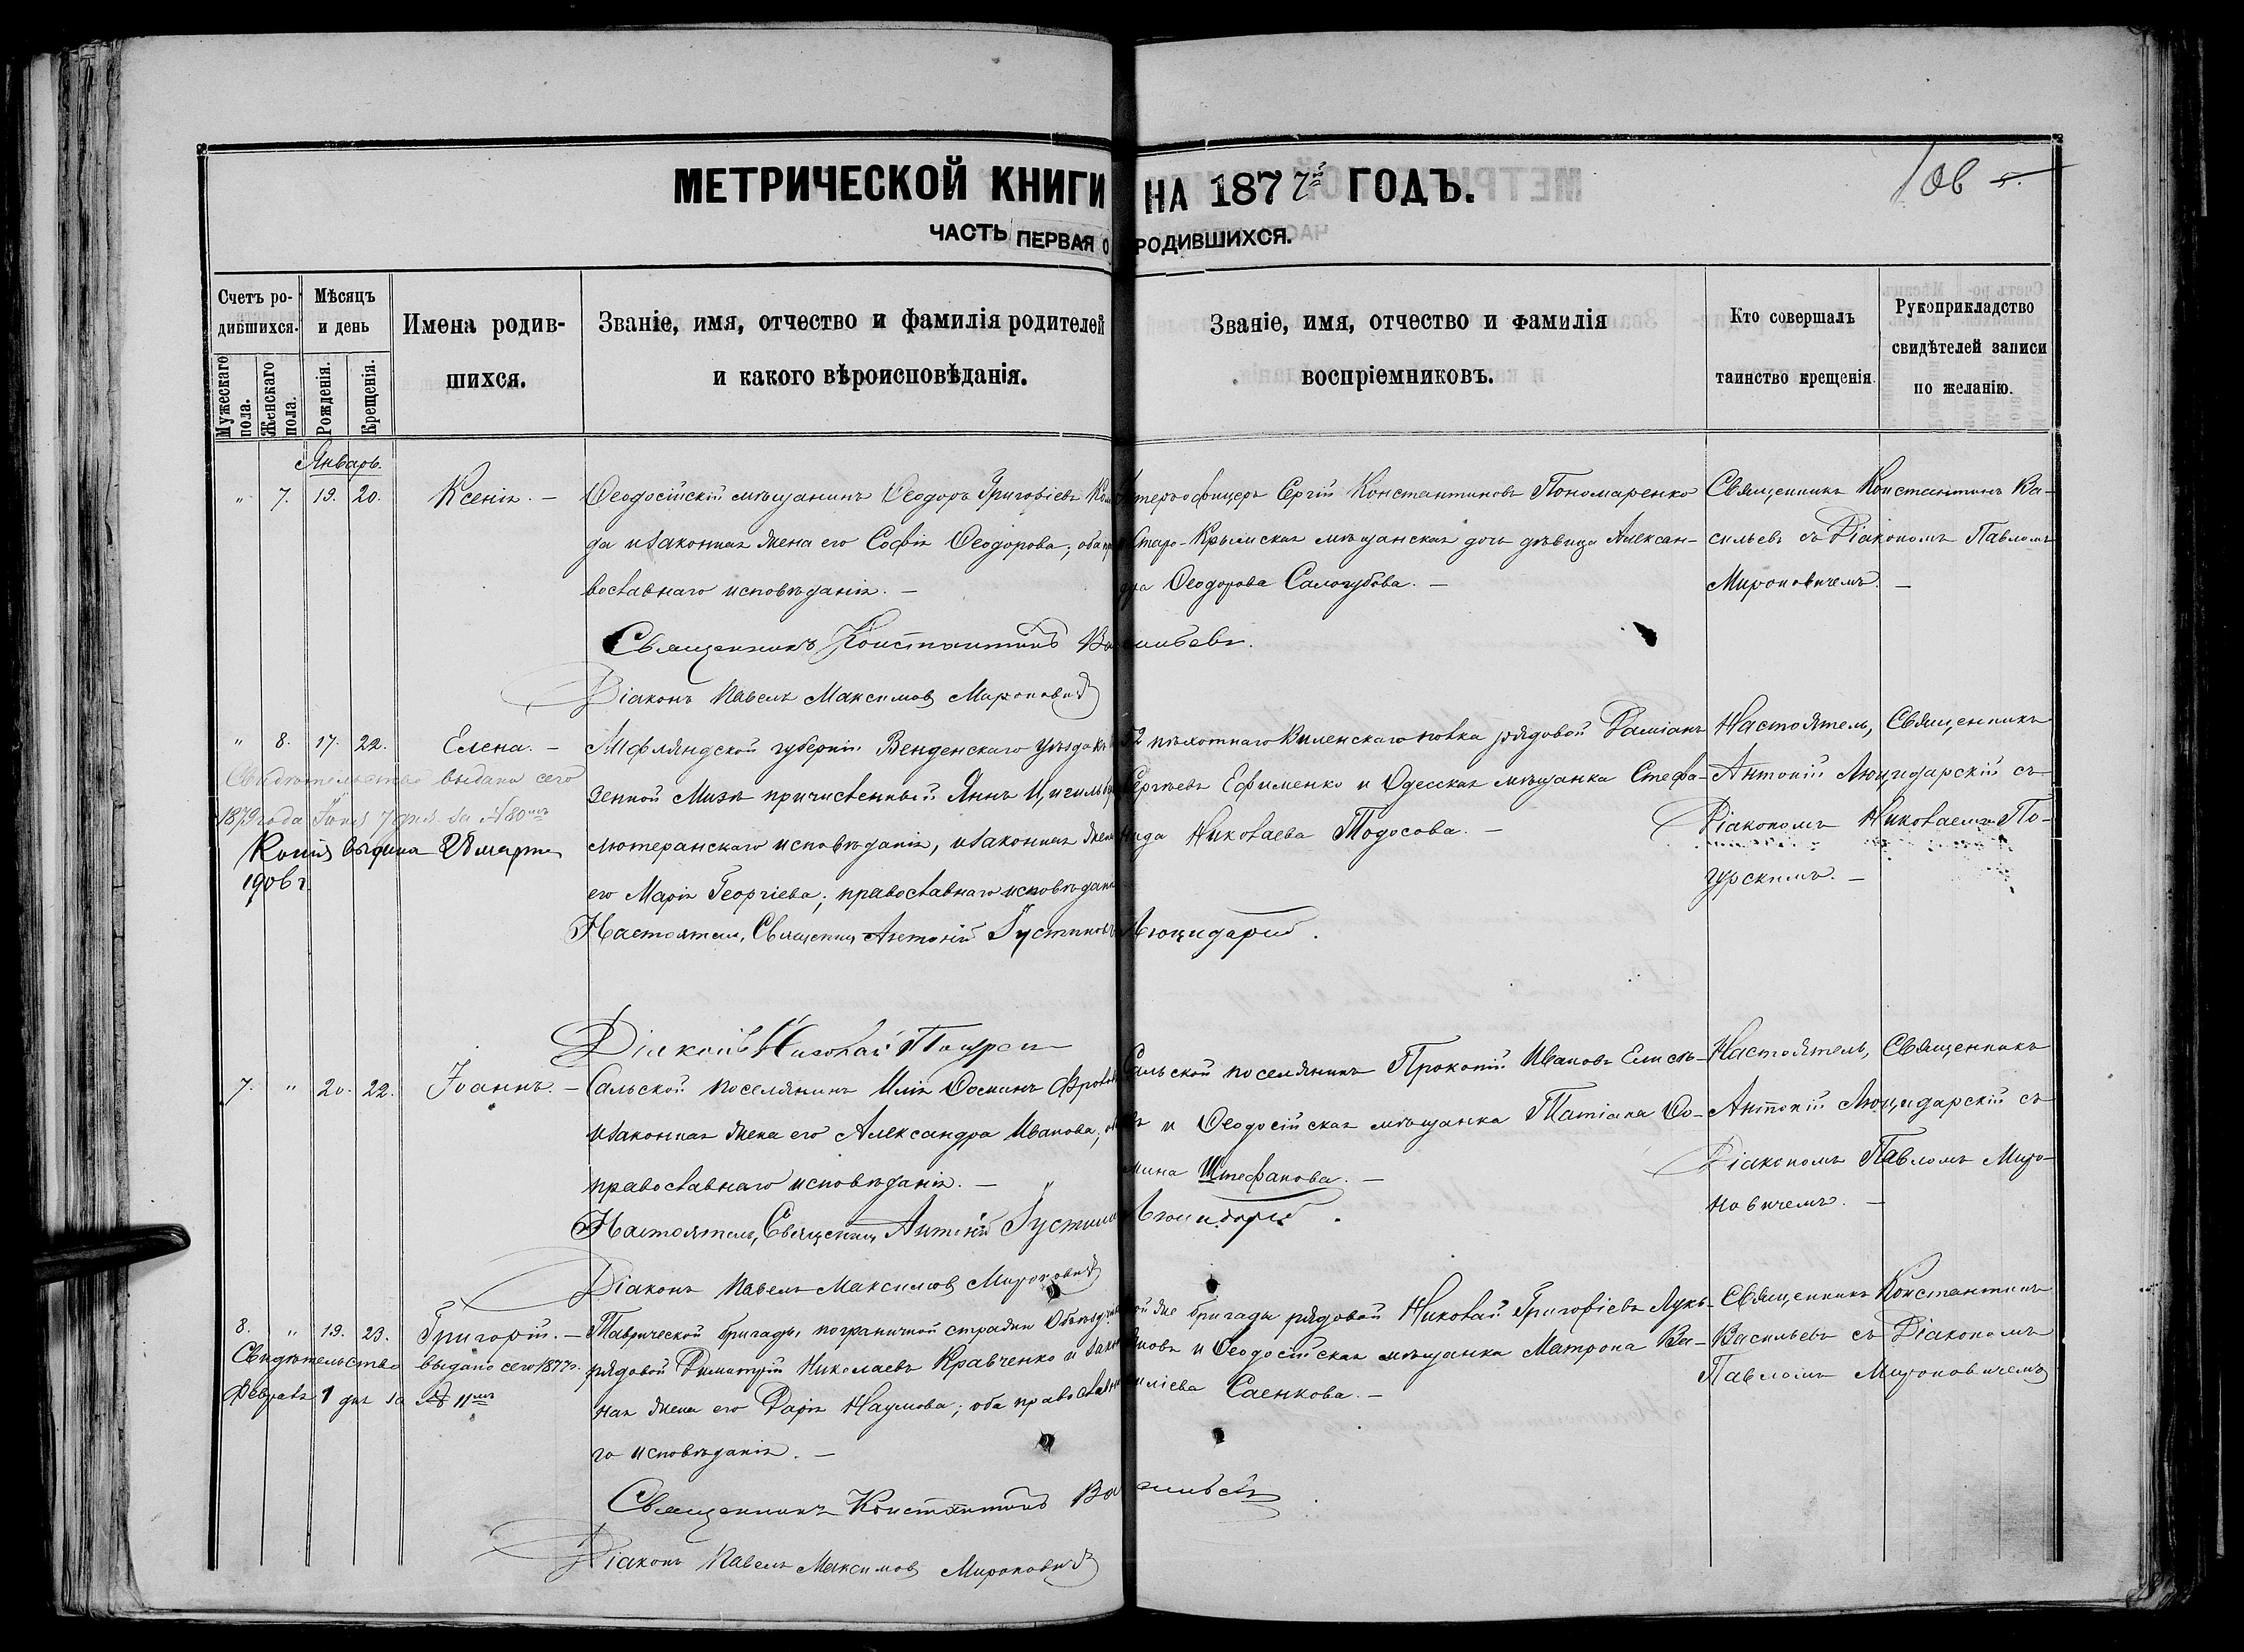 МЕТРИЧЕСКОЙ КНИГИ НА 1877й ГОДЪ.
106 5.
ЧАСТЬ ПЕРВАЯ О РОДИВШИХСЯ.
Счетъ родившихся.
Мужескаго пола.
Женскаго пола.
Мѣсяцъ и день
Рожденія.
Крещенія.
Имена родившихся.
Званіе, имя, отчество и фамилія родителей
и какого вѣроисповѣданія.
Званіе, имя, отчество и фамилія
воспріемниковъ.
Кто совершалъ
таинство крещенія.
Рукоприкладство
свидѣтелей записи
по желанію.
Январь.
" 7. 19. 20. Ксенія. —
Ѳеодосійскій мѣщанинъ Ѳеодоръ Григоріевъ
да и законная жена его Софія Ѳеодорова; оба пра
вославнаго исповѣданія. —
Унтеръ офицеръ Сергій Константиновъ Пономаренко
и Старо-Крымская мѣщанская дочь дѣвица Алексан-
дра Ѳеодорова Сологубова. —
Священникъ Константинъ Ва-
сильевъ съ Діакономъ Павломъ
Мироновичемъ. —
Священникъ Константинъ Васильевъ.
Діаконъ Павелъ Максимовъ Мироновичъ
" 8. 17. 22. Елена. —
Свидѣтельство выдано сего
1879 года Іюня 7 дня за №80мъ
Копія выдана 28 марта
1906 г.
Лифляндской губерніи Венденскаго уѣзда къ
зенной Мизѣ причисленный Яннъ
лютеранскаго исповѣданія, и законная жена
его Марія Георгіева; православнаго исповѣданія
52 пѣхотнаго Виленскаго полка рядовой Даміанъ
Сергѣевъ Ефименко и Одесская мѣщанка Стефа-
нида Николаева Тодосова. —
Настоятель, Священникъ
Антоній Люцидарскій съ
Діакономъ Николаемъ По-
гурскимъ. —
Настоятель, Священникъ Антоній Іустиновъ Люцидарскій.
Діаконъ Николай Погурскій
7. " 20. 22. Іоаннъ. —
Сальской поселянинъ Илія Ѳоминъ Фроловъ
и законная жена его Александра Иванова; оба
православнаго исповѣданія. —
Сальской поселянинъ Прокопій Ивановъ Елисѣ-
въ и Ѳеодосійская мѣщанка Татіана Ѳо-
мина Штефанова. —
Настоятель, Священникъ
Антоній Люцидарскій съ
Діакономъ Павломъ Миро-
новичемъ. —
Настоятель, Священникъ Антоній Іустиновъ Люцидарскій.
Діаконъ Павелъ Максимовъ Мироновичъ
8. " 19. 23. Григорій. —
Свидѣтельство выдано сего 1877 г.
Февраля 1 дня за № 11мъ
Таврической бригады пограничной стражи Объѣзд.
рядовой Димитрій Николаевъ Кравченко и закон
ная жена его Дарія Наумова; оба православна
го исповѣданія. —
той же бригады рядовой Николай Григоріевъ Лукь-
яновъ и Ѳеодосійская мѣщанка Матрона Ва-
силіева Саенкова. —
Священникъ Константинъ
Васильевъ съ Діакономъ
Павломъ Мироновичемъ
Священникъ Константинъ Васильевъ
Діаконъ Павелъ Максимовъ Мироновичъ